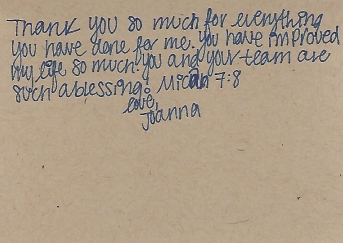 Thank you so much for everything
you have done for me. You have improved
my life so much. you and your team are
such a blessing! Micah 7:8
love,
Joanna